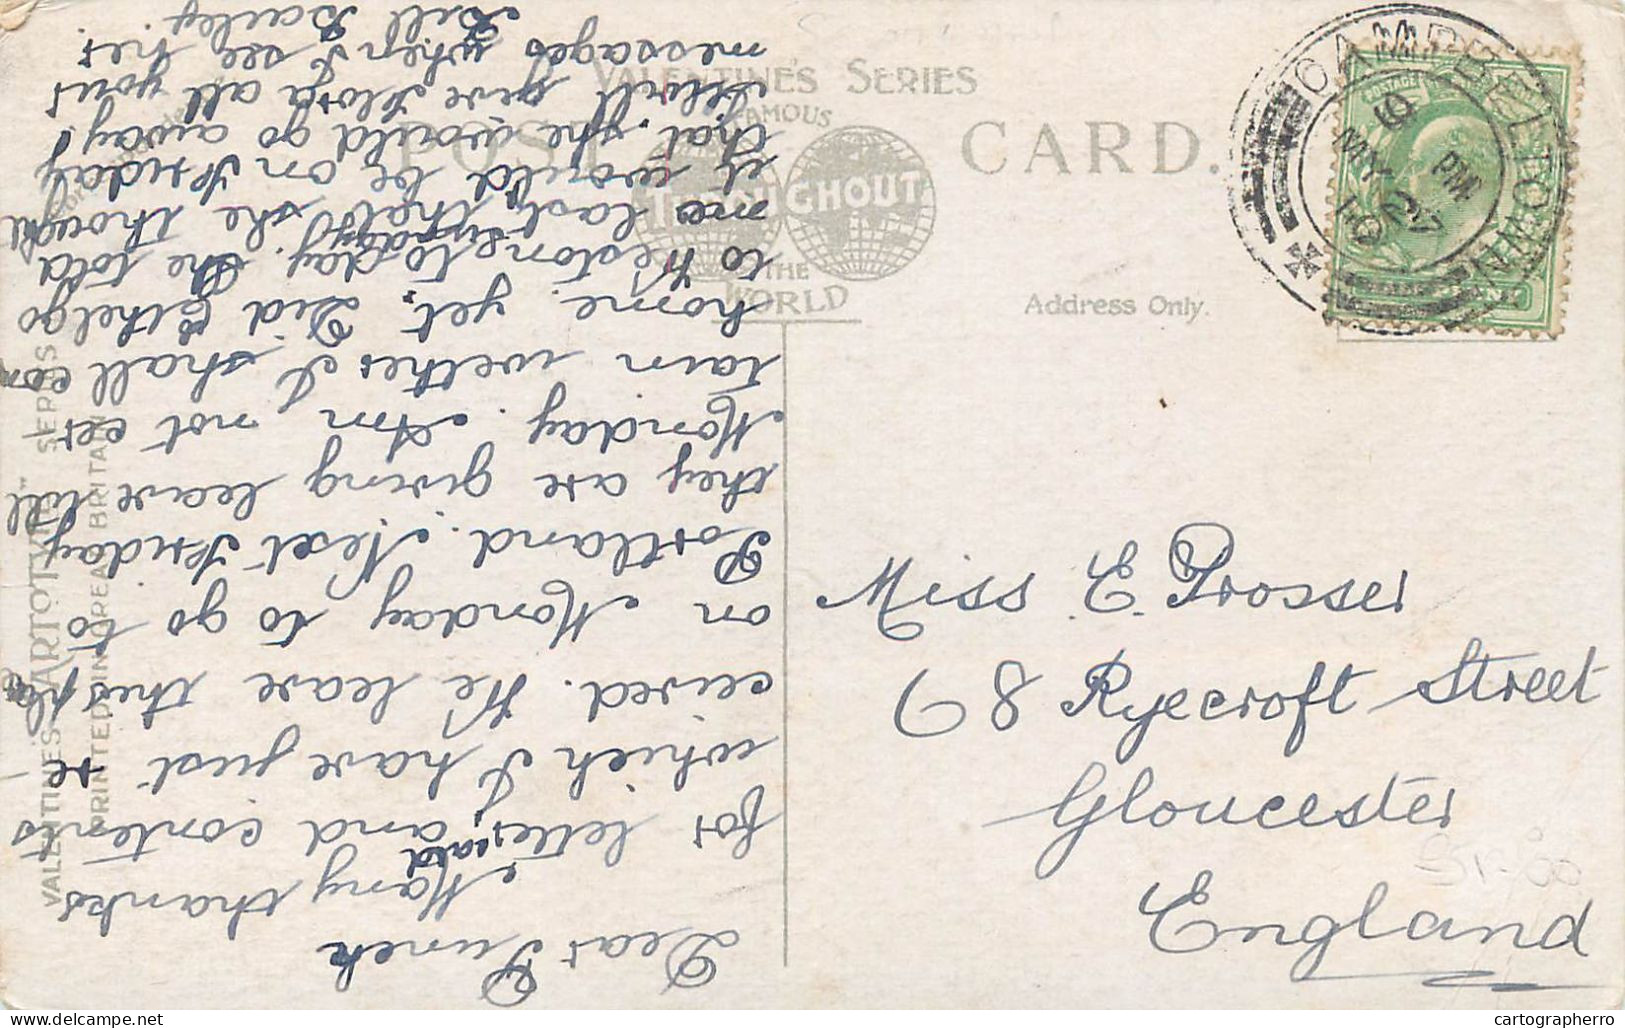 VALENTINE'S SERIES
FAMOUS
THROUGHOUT
THE
WORLD
POST CARD.
Address Only.
CAMPBELTOWN
6 PM
MY 2
VALENTINE'S "ARTOTYPE" SERIES
PRINTED IN GREAT BRITAIN
Miss E. Prosser
68 Ryecroft Street
Gloucester
England
Dear Punch
Many thanks
for letter, card and contents
which I have just re
ceived. We leave this place
on Monday to go to
Portland. Next Friday
they are giving leave till
Monday. Am not cer
tain wether I shall come
home yet. Did Ethel go
to today. She told
me last she thought
it would be on Friday
that she would go away
Will give Flora all your
messages when I see her.
Bill Bailey
cartographerro